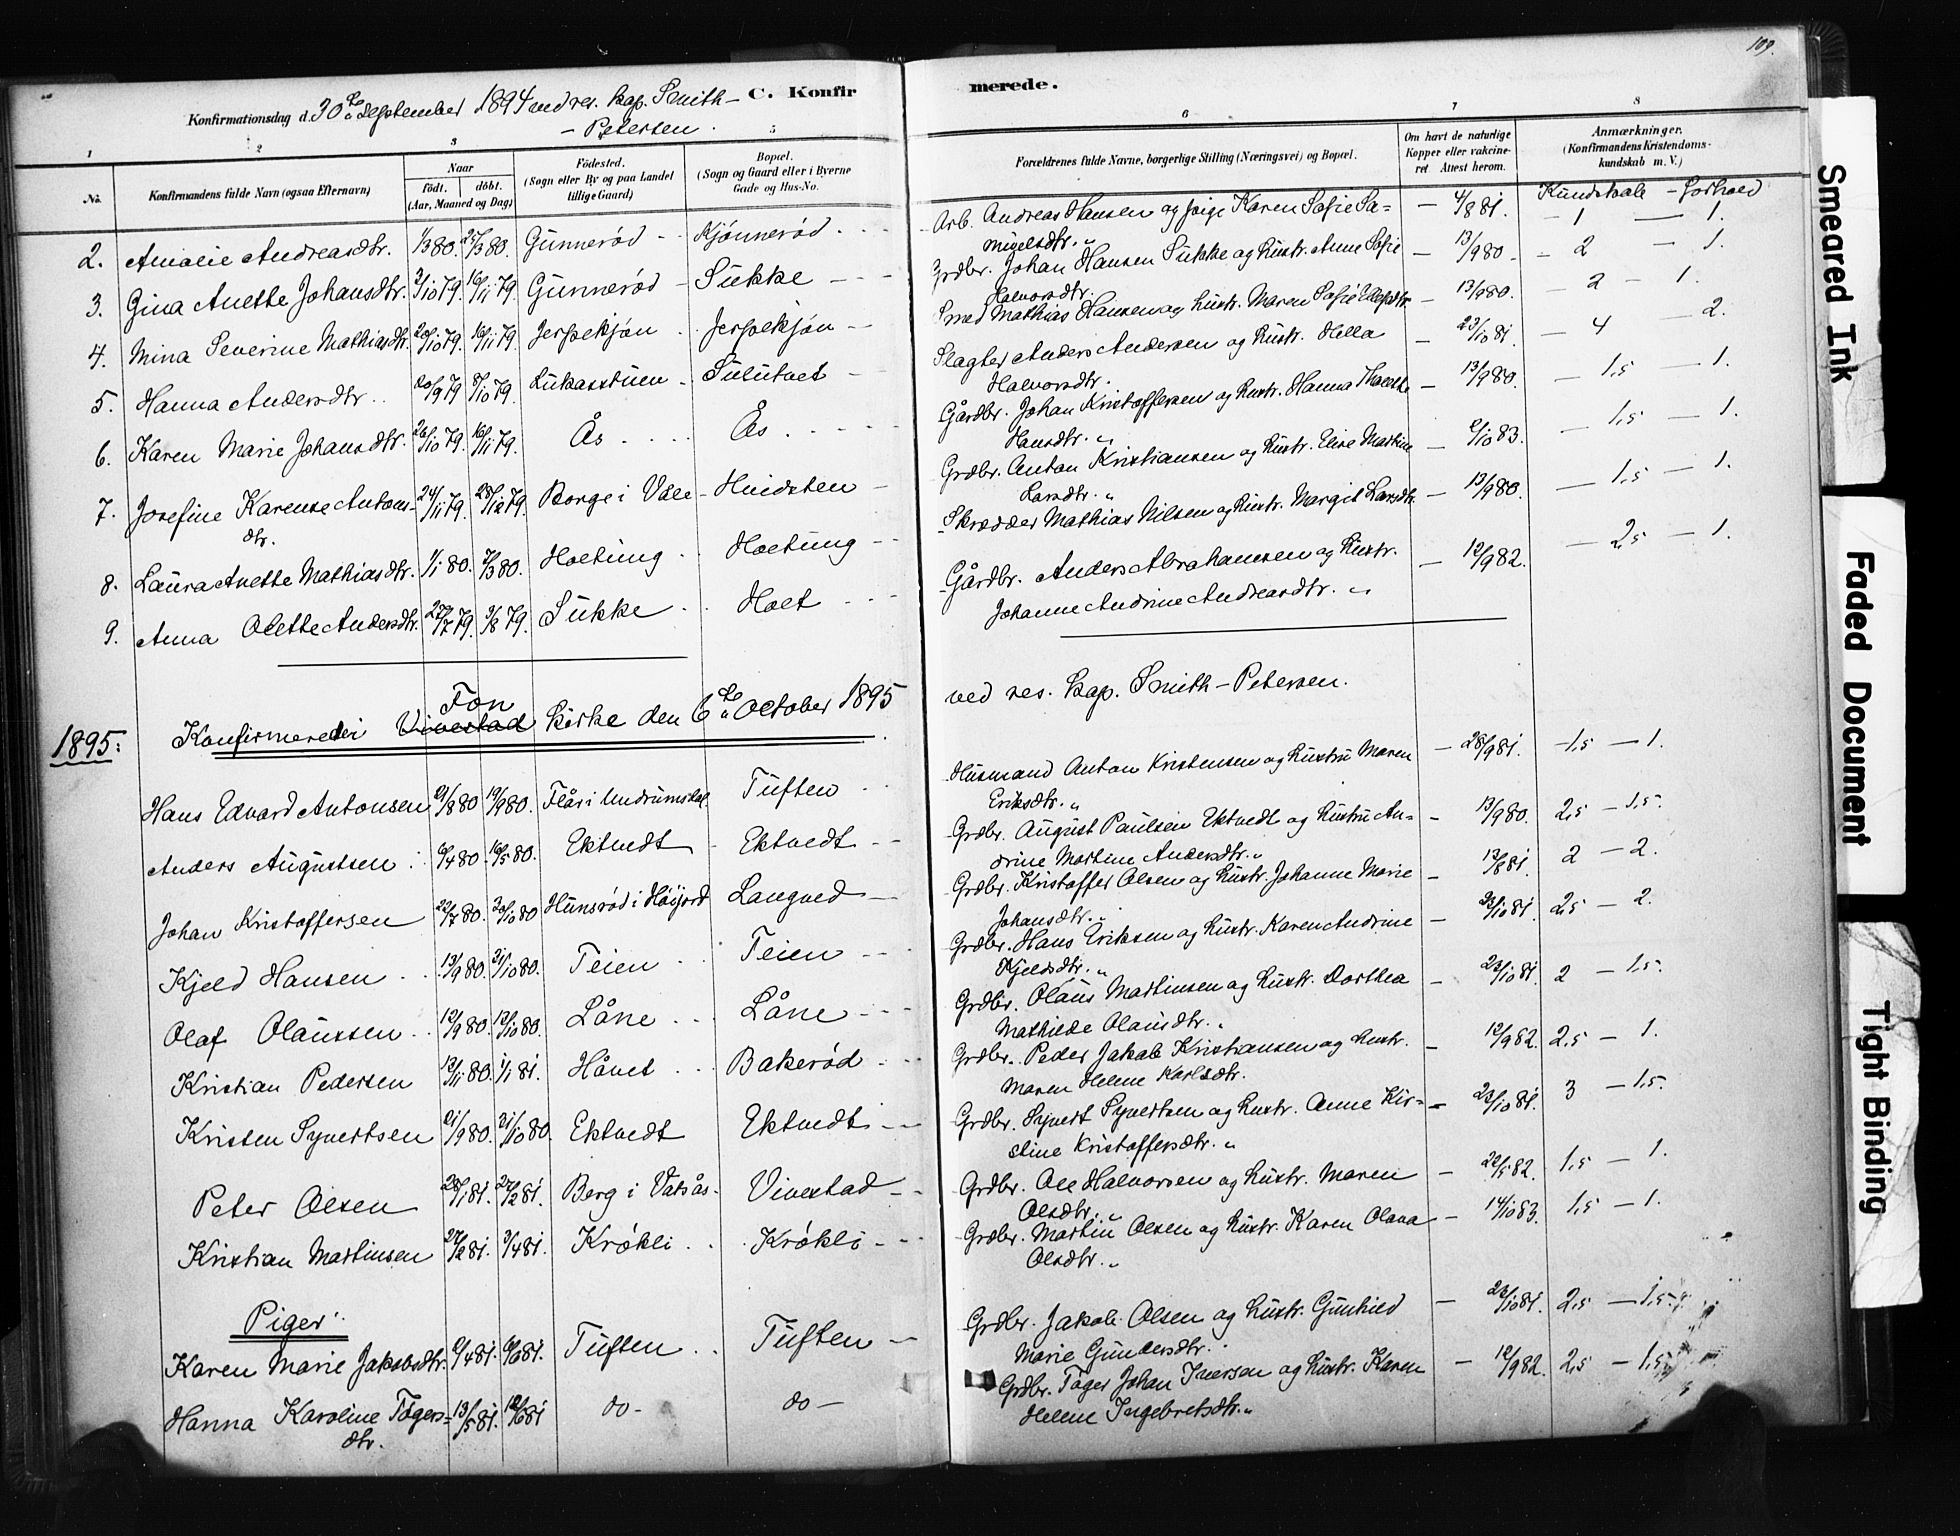 109.
Konfirmationsdag d. 30te September 1894 ved res. kap. Smith-
C. Konfir
merede.
- Petersen.
1 2 3 5 6 7 8
No. Konfirmandens fulde Navn (ogsaa Efternavn) Naar født. døbt. (Aar, Maaned og Dag) Fødested. (Sogn eller By og paa Landet tillige Gaard) Bopæl. (Sogn og Gaard eller i Byerne Gade og Hus-No. Forældrenes fulde Navne, borgerlige Stilling (Næringsvei) og Bopæl. Om havt de naturlige Kopper eller vakcineret Attest herom. Anmærkninger. (Konfirmandens Kristendomskundskab m. V.)
Kundskab - Forhold
2. Amalie Andreasdtr. 1/3 80. 25/3 80. Gunnerød - Kjønnerød - Arb. Andreas Hansen og pige Karen Sofie Sa-
muelsdtr. „ - 4/8 81. - 1 - 1.
3. Gina Anette Johansdtr. 3/10 79. 16/11 79. Gunnerød - Sukke - Grdbr. Johan Hansen Sukke og hustr. Anne Sofie
Halvorsdtr. - 13/9 80. - 2 - 1.
4. Mina Severine Mathiasdtr. 20/10 79. 16/11 79. Jerpekjøn - Jerpekjøn - Smed Mathias Hansen og hustr. Maren Sofie - 13/9 80. - 2 - 1.
5. Hanna Andersdtr. 20/9 79. 5/10 79. Lukasstuen - Sulutvet - Slagter Anders Andersen og hustr. Hella
Halvorsdtr. - 23/10 81. - 4 - 2.
6. Karen Marie Johansdtr. 26/10 79. 16/11 79. Ås Ås Gårdbr. Johan Kristoffersen og hustr. Hanna
Hansdtr. „ - 13/9 80. - 1,5 - 1.
7. Josefine Karense Antons-
dtr. 24/11 79. 28/12 79. Borge i Vale - Hvidsten - Grdbr. Anton Kristiansen og hustr. Elise Martine
Larsdtr. „ - 2/10 83. - 1,5 - 1.
8. Laura Anette Mathiasdtr. 1/1 80. 7/3 80. Holtung Holtung - Skrædder Mathias Nilsen og hustr. Margit Larsdtr. - 13/9 80. - 1,5 - 1.
9. Anna Olette Andersdtr. 27/7 79. 3/8 79. Sukke Holt Gårdbr. Anders Abrahamsen og hustr.
Johanne Andrine Andreasdtr. „ - 12/9 82. - 2,5 - 1.
Fon
1895: Konfirmerede i Vivestad kirke den 6te October 1895 ved res. kap. Smith-Petersen.
Hans Edvard Antonsen 29/8 80 19/9 80. Flår i Undrumsdal Tuften Husmand Anton Kristensen og hustru Maren
Eriksdtr. „ - 28/9 81. - 1,5 - 1.
Anders Augustsen 6/4 80. 16/5 80. Ektvedt - Ektvedt - Grdbr. August Paulsen Ektvedt og hustru An-
drine Martine Andersdtr. „ - 13/9 80. 2,5 - 1,5.
Johan Kristoffersen 22/7 80. 30/10 80 Hunsrød i Høijord Langved - Grdbr. Kristoffer Olsen og hustr. Johanne Marie
Johansdtr. „ - 13/8 81. 2 - 2.
Kjeld Hansen 13/9 80. 31/10 80. Teien Teien - Grdbr. Hans Eriksen og hustr. Karen Andrine
Kjeldsdtr. „ - 23/10 81. 2,5 - 2.
Olaf Olaussen 12/9 80. 12/10 80. Låne Låne - Grdbr. Olaus Martinsen og hustr. Dorthea
Mathilde Olausdtr. „ - 23/10 81. 2 - 1,5.
Kristian Pedersen 13/11 80. 1/1 81. Håvet Bakerød - Grdbr. Peder Jakob Kristiansen og hustr.
Maren Helene Karlsdtr. - 12/9 82. 2,5 - 1.
Kristen Syvertsen 21/9 80. 31/10 80. Ektvedt Ektvedt - Grdbr. Syvert Syvertsen og hustr. Anne Kir-
stine Kristoffersdtr. „ - 23/10 81. 3 - 1,5.
Peter Olsen 28/1 81. 27/2 81. Berg i Vatsås - Vivestad - Grdbr. Ole Halvorsen og hustr. Maren
Olsdtr. „ - 22/5 82. 1,5 - 1.
Kristian Martinsen 27/2 81. 3/4 81. Krøkli Krøkli - Grdbr. Martin Olsen og hustr. Karen Olava
Olsdtr. „ - 14/10 83. 1,5 - 1.
Piger:
Karen Marie Jakobsdtr. 6/4 81. 6/6 81. Tuften Tuften - Grdbr. Jakob Olsen og hustr. Gunhild
Marie Gundersdtr. - 23/10 81. 2,5 - 1,5.
Hanna Karoline Tøgers-
dtr. 13/5 81. 12/6 81 do - do - Grdbr. Tøger Johan Iversen og hustr. Karen
Helene Ingebretsdtr. „ - 12/9 82. 2,5 - 1,5
Smeared Ink
Faded Document
Tight Binding